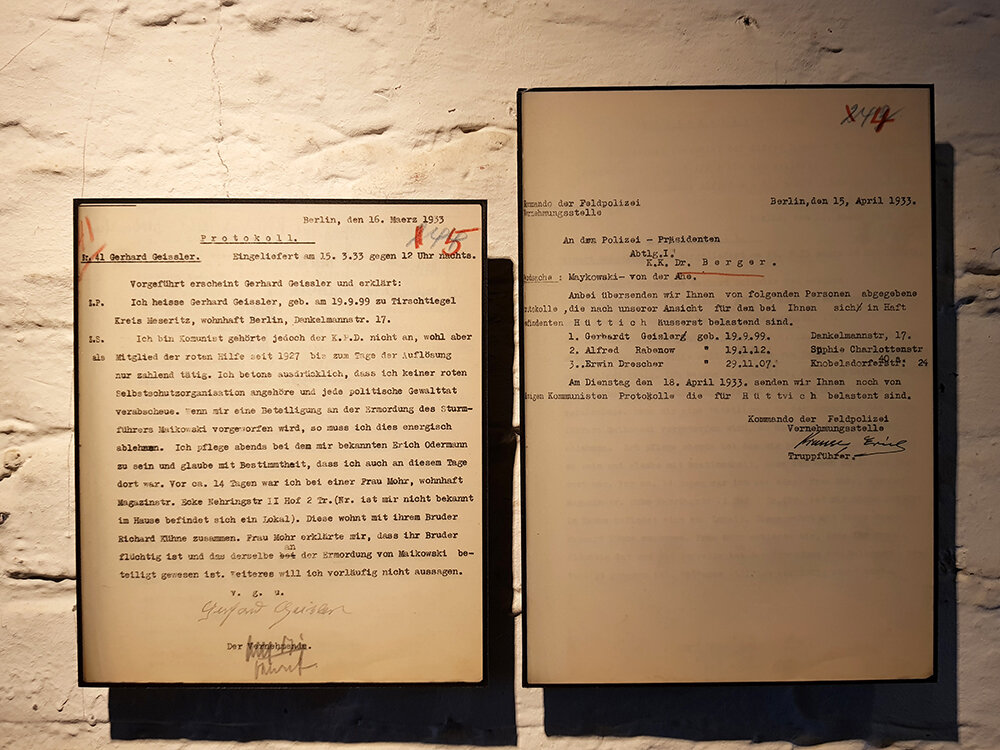 Berlin, den 16. Maerz 1933
Protokoll.
145
41 Gerhard Geissler. Eingeliefert am 15. 3.33 gegen 12 Uhr nachts.
Vorgeführt erscheint Gerhard Geissler und erklärt:
Z.P. Ich heisse Gerhard Geissler, geb. am 19.9.99 zu Tirschtiegel
Kreis Meseritz, wohnhaft Berlin, Dankelmannstr. 17.
Z.S. Ich bin Komunist gehörte jedoch der K.P.D. nicht an, wohl aber
als Mitglied der roten Hilfe seit 1927 bis zum Tage der Auflösung
nur zahlend tätig. Ich betone ausdrücklich, dass ich keiner roten
Selbstschutzorganisation angehöre und jede politische Gewalttat
verabscheue. Wenn mir eine Beteiligung an der Ermordung des Sturm-
führers Maikowski vorgeworfen wird, so muss ich dies energisch
ablehnen. Ich pflege abends bei dem mir bekannten Erich Odermann
zu sein und glaube mit Bestimmtheit, dass ich auch an diesem Tage
dort war. Vor ca. 14 Tagen war ich bei einer Frau Mohr, wohnhaft
Magazinstr. Ecke Nehringstr II Hof 2 Tr.(Nr. ist mir nicht bekannt
im Hause befindet sich ein Lokal). Diese wohnt mit ihrem Bruder
Richard Kühne zusammen. Frau Mohr erklärte mir, dass ihr Bruder
flüchtig ist und das derselbe an der Ermordung von Maikowski be-
teiligt gewesen ist. Weiteres will ich vorläufig nicht aussagen.
v. g. u.
Gerhard Geissler
Der
144
Kommando der Feldpolizei Berlin,den 15, April 1933.
Vernehmungsstelle
An den Polizei - Präsidenten
Abtlg.I.
K.K. Dr. Berger.
: Maykowski- von der Ahe.
Anbei übersenden wir Ihnen von folgenden Personen abgegebene
,die nach unserer Ansicht für den bei Ihnen sich in Haft
findenten Hüttich äusserst belastend sind.
1. Gerhardt Geislerg geb. 19.9.99. Dankelmannstr, 17.
2. Alfred Rabenow " 19.1.12. Sophie Charlottenstr
40.a.
3..Erwin Drescher " 29.11.07. Knobelsdorferstr. 24
Am Dienstag den 18. April 1933. senden wir Ihnen noch von
Kommunisten Protokolle die für Hüttvich belastent sind.
Kommando der Feldpolizei
Vernehmungsstelle
Truppführer.